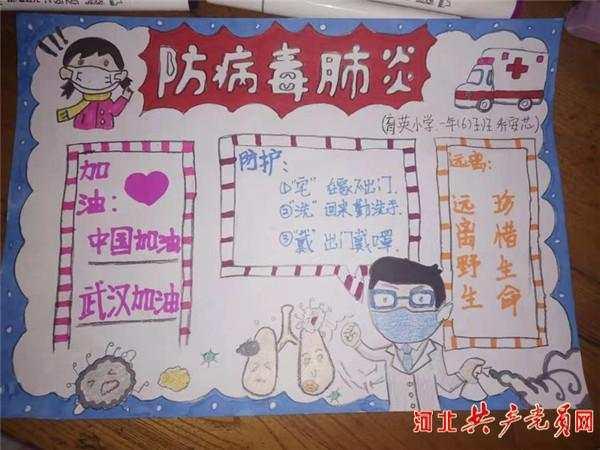 防病毒肺炎
(育英小学.一年(6)班 乔安芯)
加油:
中国加油
武汉加油
防护:
①"宅" 在家不出门.
②"洗" 回来勤洗手.
③"戴" 出门戴口罩.
远离:
珍惜生命
远离野生
河北共产党员网